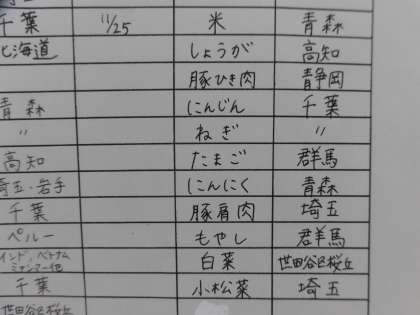 千葉 11/25 米 青森
北海道 しょうが 高知
豚ひき肉 静岡
青森 にんじん 千葉
〃 ねぎ 〃
高知 たまご 群馬
埼玉・岩手 にんにく 青森
千葉 豚肩肉 埼玉
ペルー もやし 群馬
インド、ベトナム
ミャンマー他 白菜 世田谷区桜丘
千葉 小松菜 埼玉
世田谷区桜丘